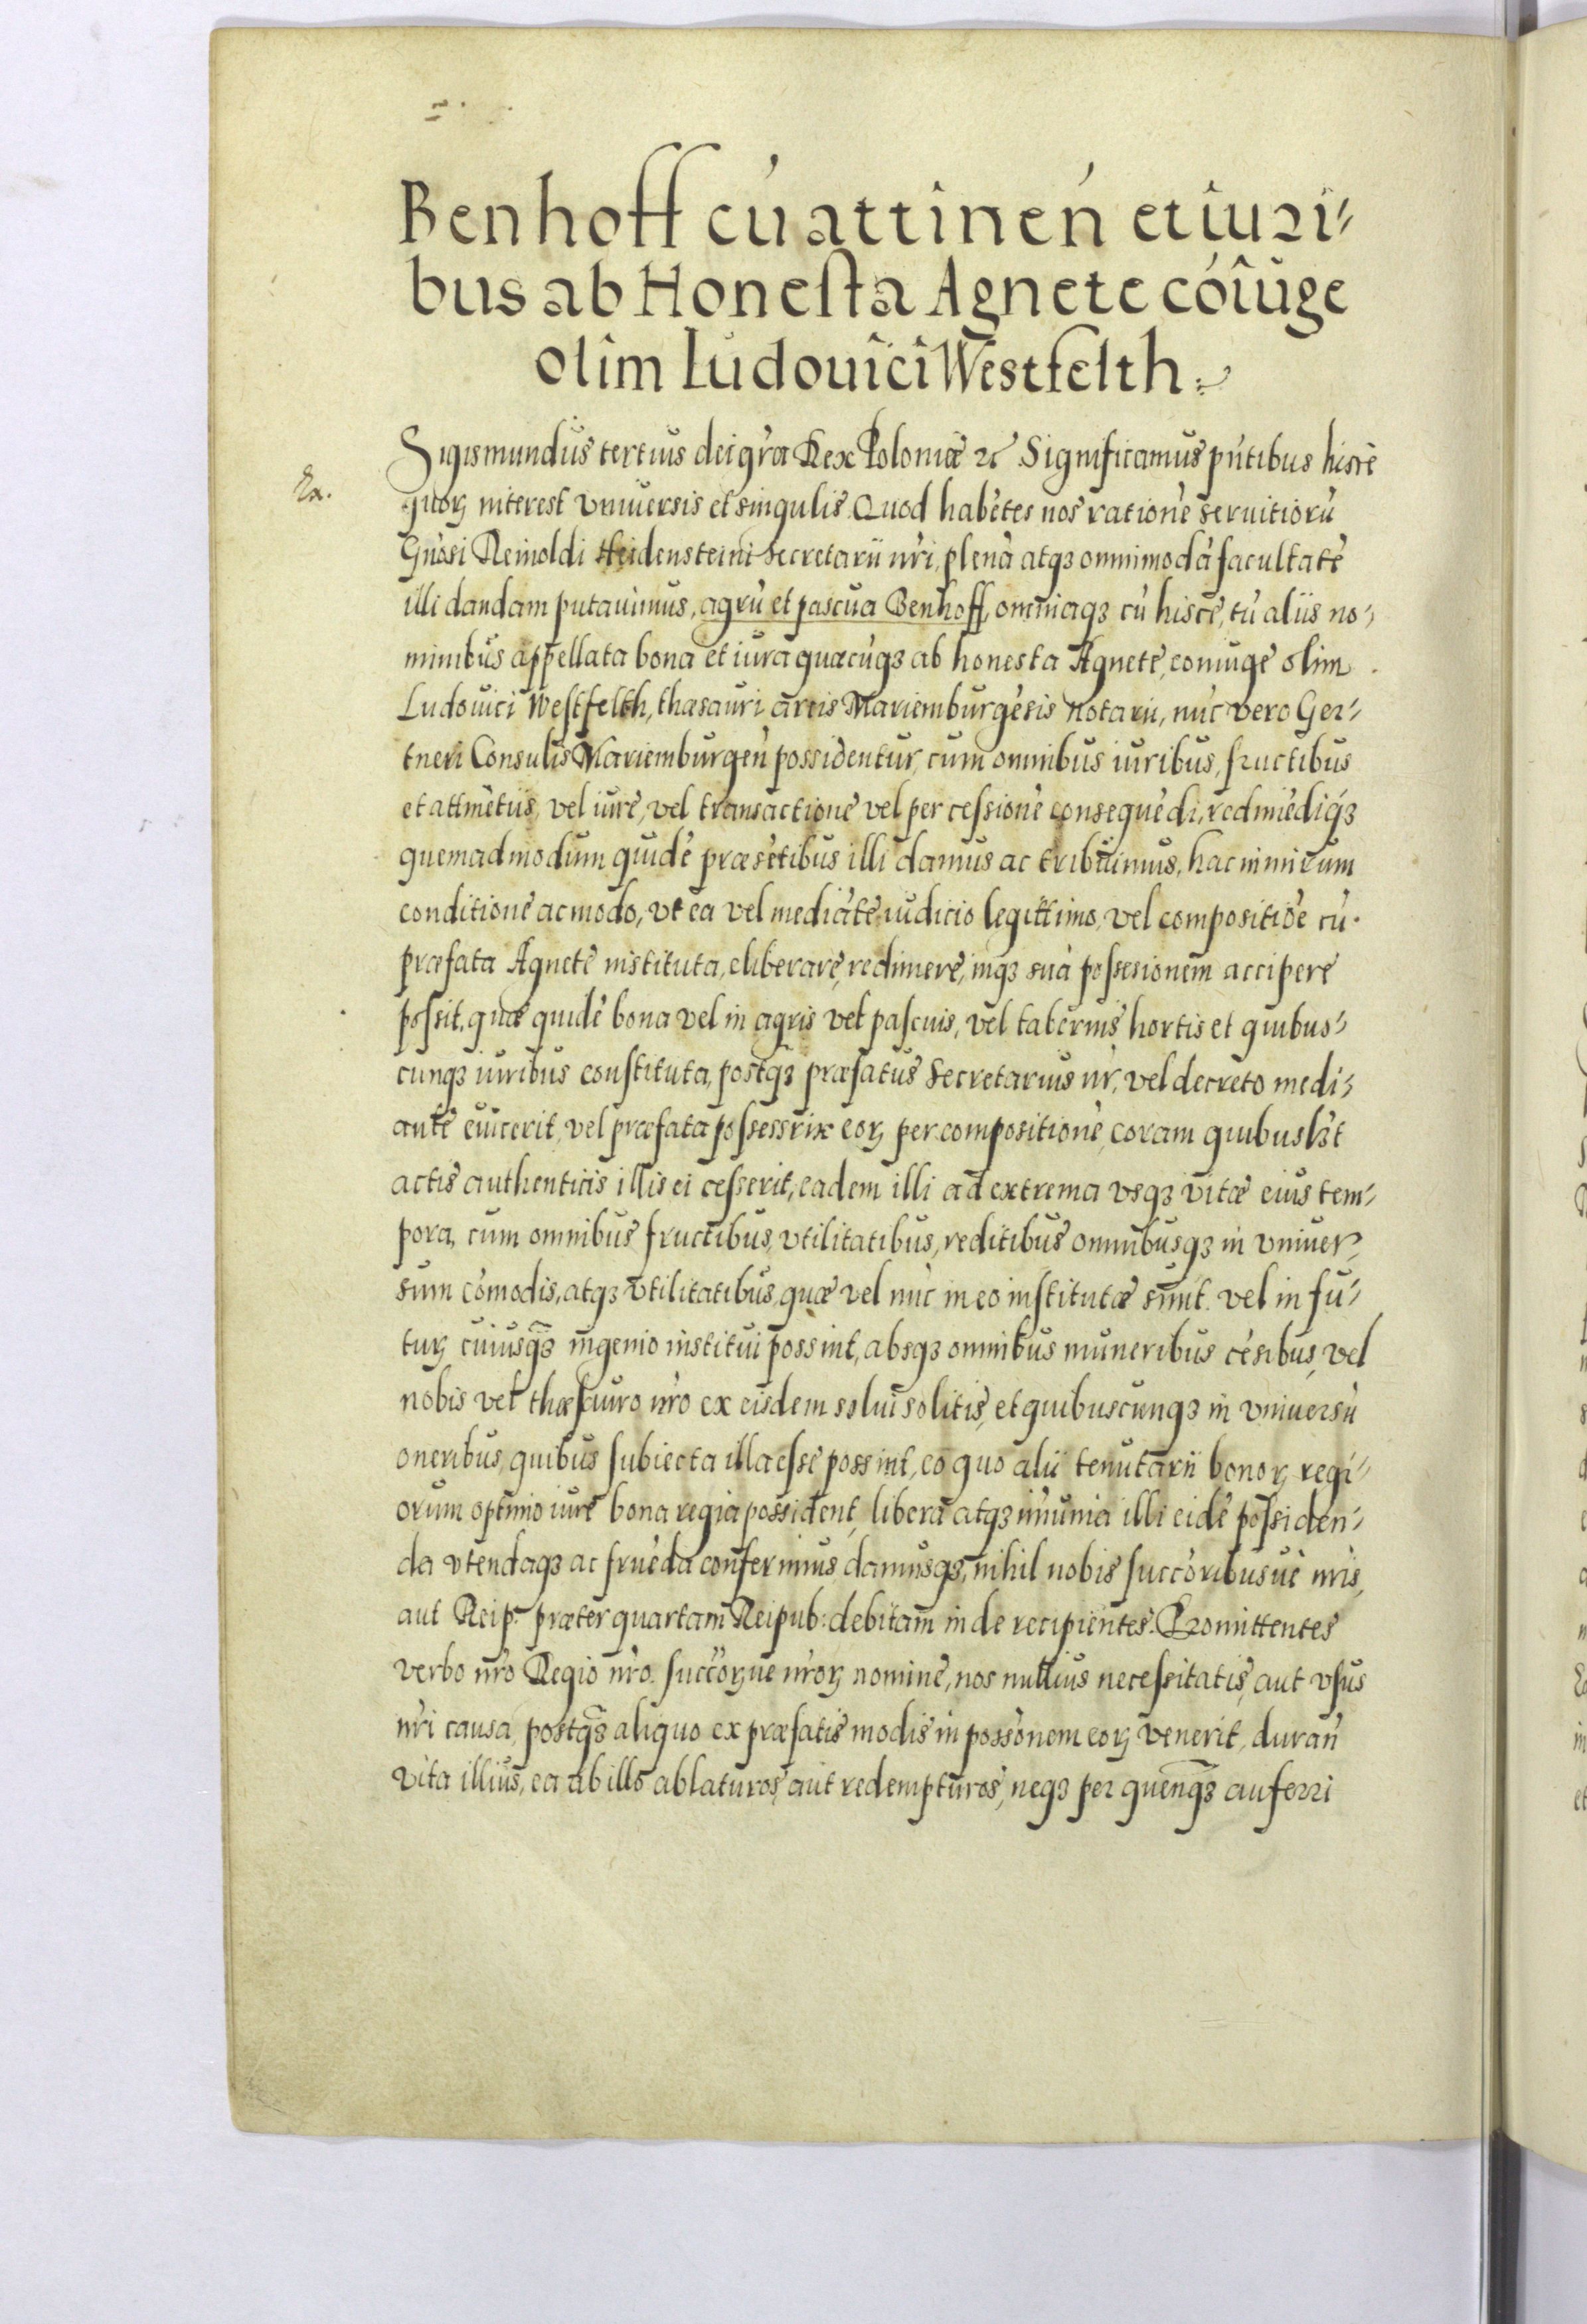 Benhoff cú attinen̄ et iuri⸗
bus ab Honesta Agnete cóiuge
olim Ludouici Westfelth.
Sigismundus tertius dei gr̃a Rex Poloniæ ꝛc Significamus pñtibus hiscè
Ex.
quoꝝ interest vniuersis et singulis. Quod habètes nos rationè seruitiorù
Gñosi Reinoldi Heidensteini secretarii nr̃i, plenà atqꝫ omnimodà facultatè
illi dandam putauimus, agrù et pascua Benhoff, omniaqꝫ cù hiscè, tù aliis no⸗
minibus appellata bona et iura quæcùqꝫ ab honesta Agnete, coniuge olim
Ludouici Westfelth, thæsauri arcis Mariemburgèsis Notarii, nùc vero Ger⸗
tneri Consulis Mariemburgen̄ possidentur, cum omnibus iuribus, fructibus
et attinètiis, vel iure, vel transactione vel per cessionè consequèdi, redimèdiqꝫ
quemadmodum quidè præsètibus illi damus ac tribuimus, hac nimirum
conditione ac modo, vt ea vel mediàte iudicio legittimo, vel compositiòe cù
præfata Agnetè instituta, eliberare, redimere, inqꝫ suà possesionem accipere
possit, quæ quidè bona vel in agris vel pascuis, vel tabernis hortis et quibus⸗
cunqꝫ iuribus constituta, postqꝫ præfatus Secretarius nr̃, vel decreto medi⸗
ante euicerit, vel præfata possessrix eoꝝ per compositionè, coram quibuslꝫt
actis authenticis illis ei cesserit, eadem illi ad extrema vsqꝫ vitæ eius tem⸗
pora, cum omnibus fructibus, vtilitatibus, reditibus omnibusqꝫ in vniuer⸗
sum còmodis, atqꝫ vtilitatibus, quæ vel nùc in eo institutæ sunt. vel in fu⸗
tuꝝ cuiusqꝫ ingenio institui possint, absqꝫ omnibus muneribus cèsibus, vel
nobis vel thæsauro nr̃o ex eisdem solui solitis, et quibuscunqꝫ in vniuersù
oneribus, quibus subiecta illa esse possint, eo quo alii tenutarii bonoꝝ regi⸗
orum optimo iure bona regia possident, libera atqꝫ imùnia illi eidè possiden⸗
da vtendaqꝫ ac fruèda conferimus, damusqꝫ, nihil nobis succòribusuè nr̃is,
aut Reip. præter quartam Reipub: debitam inde recipientes. Promittentes
verbo nr̃o Regio nr̃o. succòꝝue nr̃oꝝ nomine, nos nullius necessitatis, aut vsus
nr̃i causa, postqꝫ aliquo ex præfatis modis in possònem eoꝝ venerit, duran̄
vita illius, ea ab illo ablaturos, aut redempturos, neqꝫ per quenqꝫ auferri